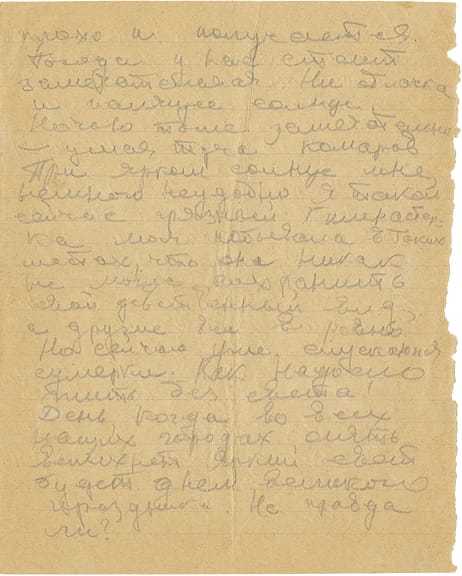 плохо и получается.
Погода у нас стоит
замечательная. Ни облачка
и палящее солнце
Ночью тоже замечательно
– умая, туча комаров
При ярком солнце мне
немного неудобно Я такая
сейчас грязная Гимнастер-
ка моя побывала в таких
местах, что она никак
не могла сохранить
свой девственный вид,
а другие все в
Но сейчас уже спускаются
сумерки. Как надоело
жить без света!
День когда во всех
наших городах опять
вспыхнет яркий свет
будет днем великого
праздника. Не правда
ли?